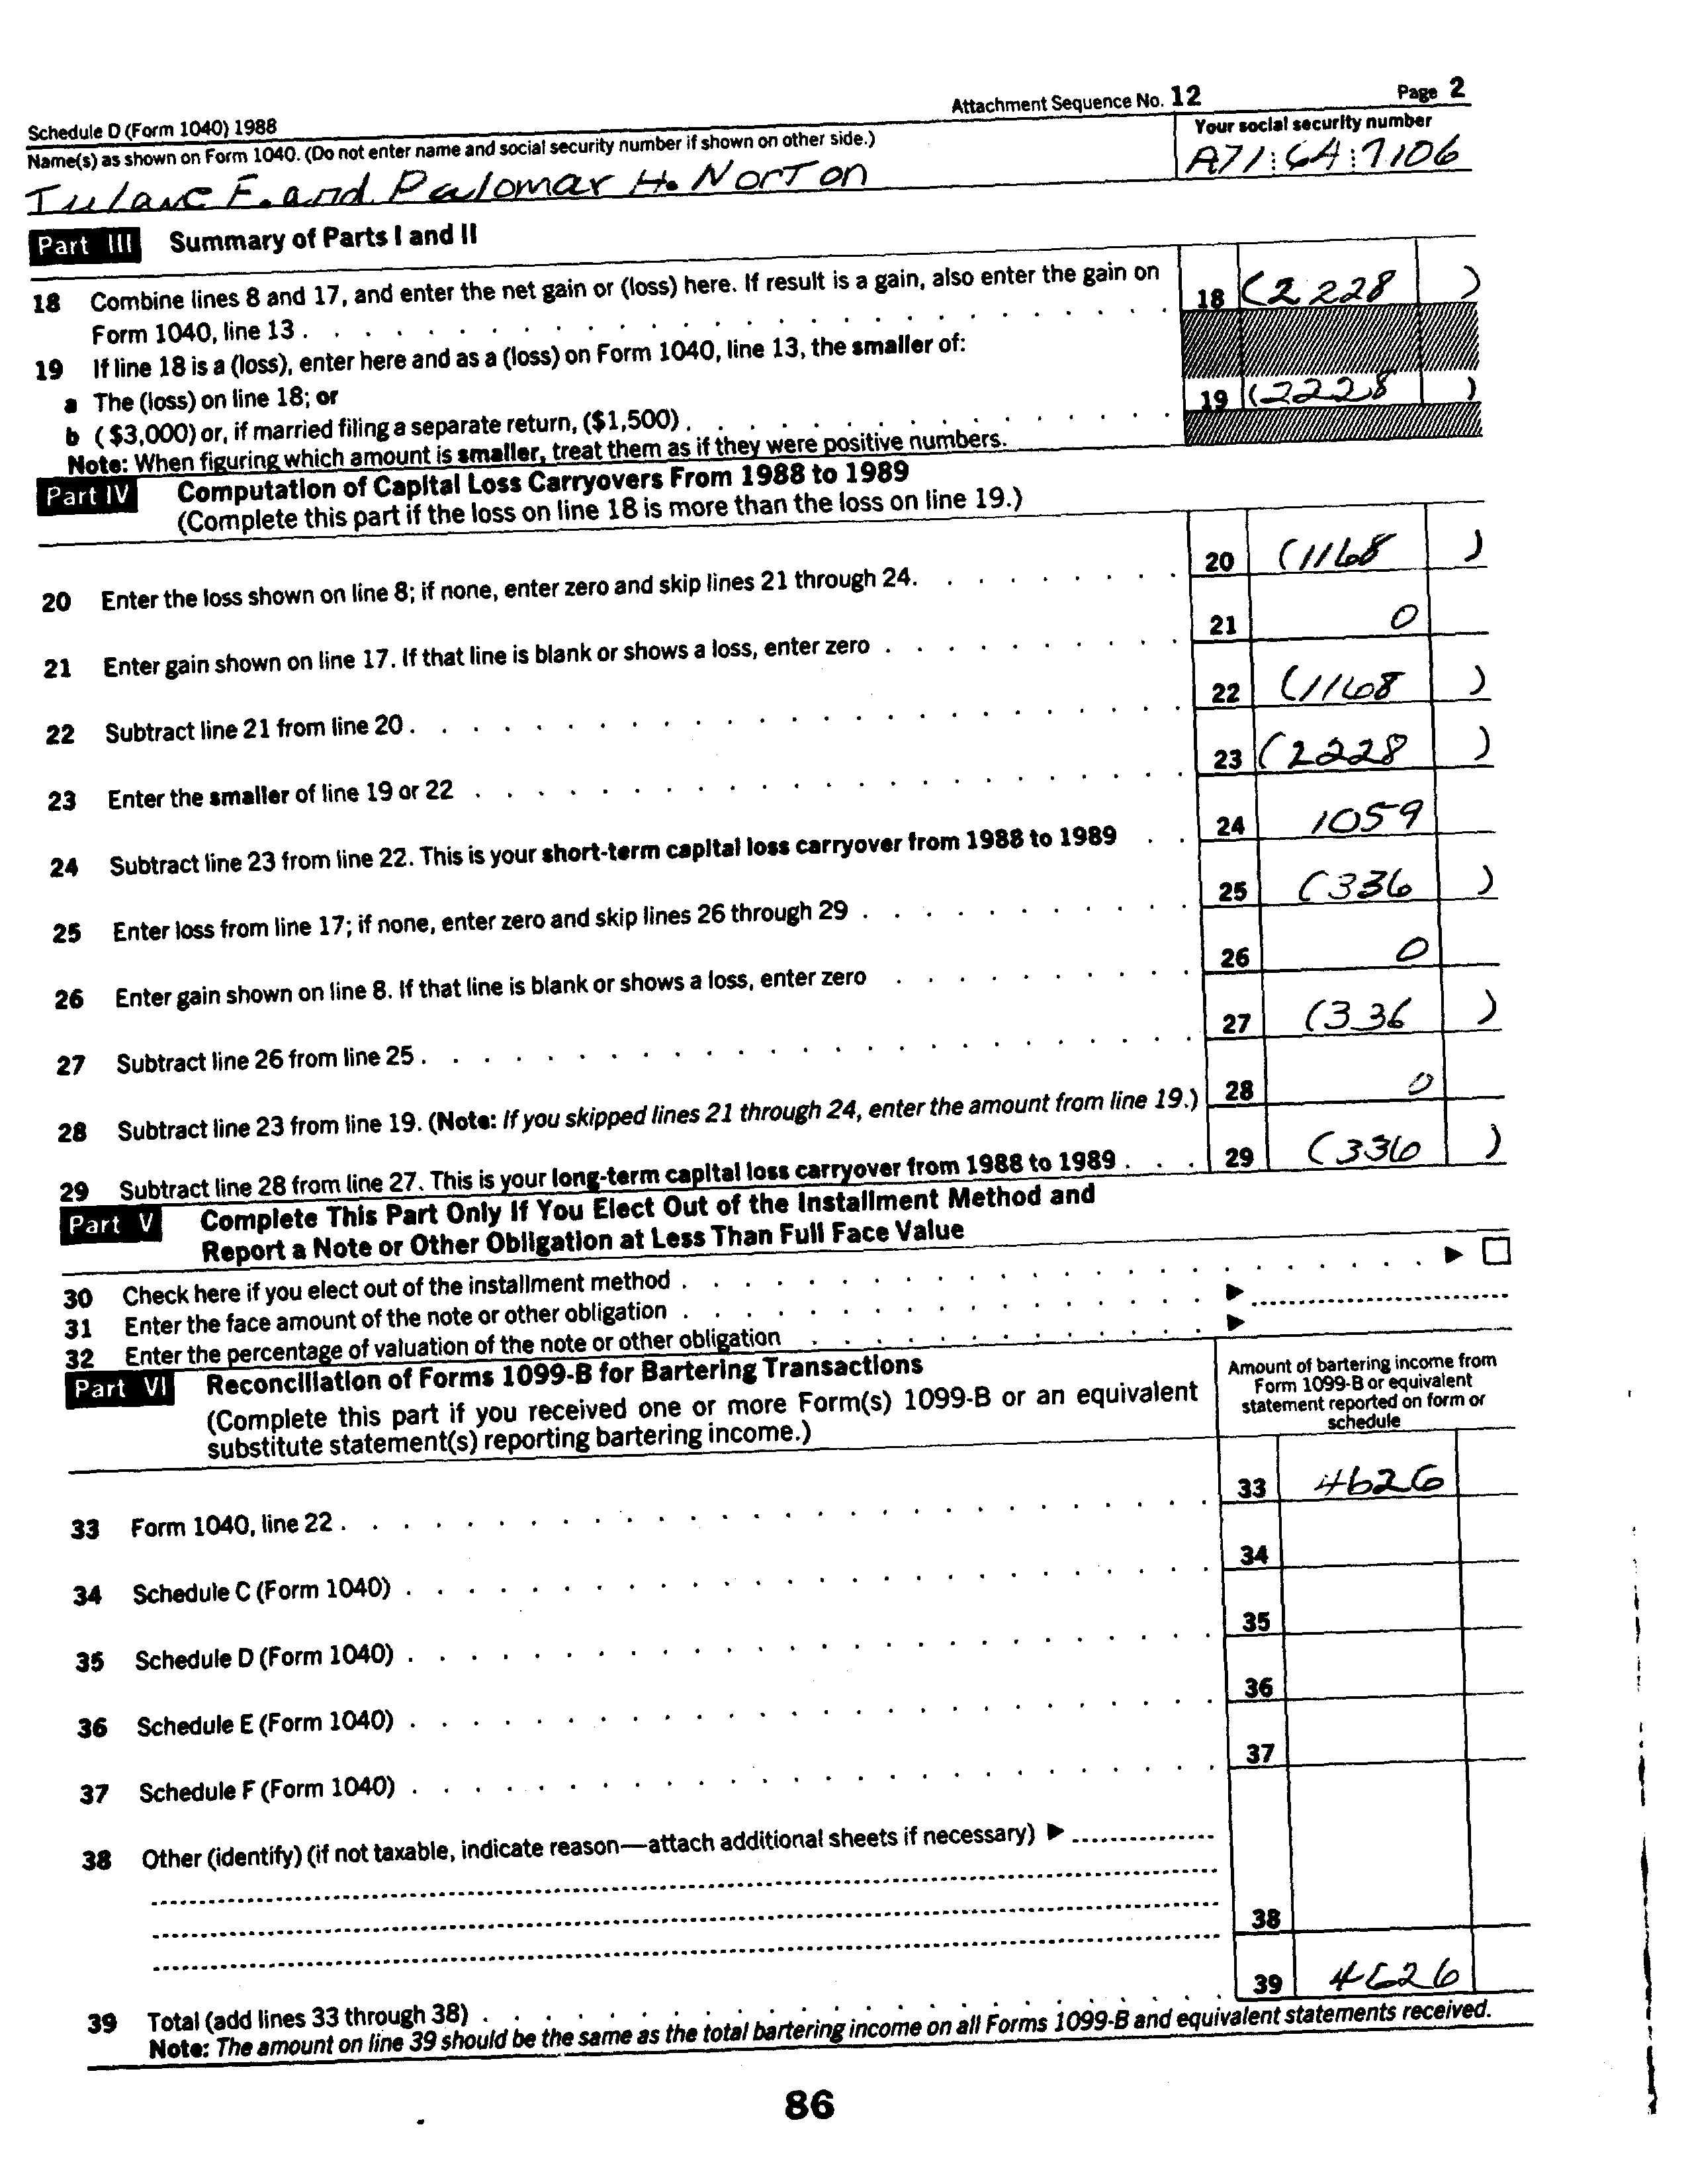 Schedule D (Form 1040) 1988 Attachment Sequence No. 12 Page 2
Name(s) as shown on Form 1040. (Do not enter name and social security number if shown on other side.) Your social security number
F. and Palomar H. Norton A71:64:7106
Part III Summary of Parts I and II
18 Combine lines 8 and 17, and enter the net gain or (loss) here. If result is a gain, also enter the gain on
Form 1040, line 13 . 18 (2228 )
19 If line 18 is a (loss), enter here and as a (loss) on Form 1040, line 13, the smaller of:
a The (loss) on line 18; or
b ($3,000) or, if married filing a separate return, ($1,500) . 19 (2228 )
Note: When figuring which amount is smaller, treat them as if they were positive numbers.
Part IV Computation of Capital Loss Carryovers From 1988 to 1989
(Complete this part if the loss on line 18 is more than the loss on line 19.)
20 Enter the loss shown on line 8; if none, enter zero and skip lines 21 through 24. 20 (1168 )
21 Enter gain shown on line 17. If that line is blank or shows a loss, enter zero . 21 0
22 Subtract line 21 from line 20 . 22 (1168 )
23 Enter the smaller of line 19 or 22 . 23 (2228 )
24 Subtract line 23 from line 22. This is your short-term capital loss carryover from 1988 to 1989 . 24 1059
25 Enter loss from line 17; if none, enter zero and skip lines 26 through 29 . 25 (336 )
26 Enter gain shown on line 8. If that line is blank or shows a loss, enter zero . 26 0
27 Subtract line 26 from line 25 . 27 (336 )
28 Subtract line 23 from line 19. (Note: If you skipped lines 21 through 24, enter the amount from line 19.) 28 0
29 Subtract line 28 from line 27. This is your long-term capital loss carryover from 1988 to 1989 . 29 (336 )
Part V Complete This Part Only If You Elect Out of the Installment Method and
Report a Note or Other Obligation at Less Than Full Face Value
30 Check here if you elect out of the installment method . ▶ ☐
31 Enter the face amount of the note or other obligation . ▶
32 Enter the percentage of valuation of the note or other obligation . ▶
Part VI Reconciliation of Forms 1099-B for Bartering Transactions
(Complete this part if you received one or more Form(s) 1099-B or an equivalent
substitute statement(s) reporting bartering income.)
Amount of bartering income from
Form 1099-B or equivalent
statement reported on form or
schedule
33 Form 1040, line 22 . 33 4626
34 Schedule C (Form 1040) . 34
35 Schedule D (Form 1040) . 35
36 Schedule E (Form 1040) . 36
37 Schedule F (Form 1040) . 37
38 Other (identify) (if not taxable, indicate reason—attach additional sheets if necessary) ▶
38
39 Total (add lines 33 through 38) . 39 4626
Note: The amount on line 39 should be the same as the total bartering income on all Forms 1099-B and equivalent statements received.
86